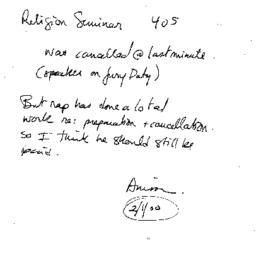 Religion Seminar 405
was cancelled @ last minute.
(speaker on Jury Duty)
But rap has done a lot of
work re: preparation + cancellation.
so I think he should still be
paid.
2/1/00